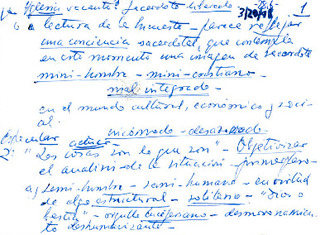 Iglesia vacante? Sacerdote liberado 1
3/20/78
la lectura de la encuesta - parece reflejar
una conciencia sacerdotal que contempla
en este momento una imagen de sacerdote
mini-hombre - mini-cristiano -
mal integrado -
en el mundo cultural, económico y soci-
al.
actúa - incómodo - desarraigado
2: "Las cosas son lo que son" - Objetivizar
el análisis de la situación -
a) semi-hombre - semi-humano - en virtud
de algo estructural - solitario - "dios o
bestia" - orgullo - desmoronamien-
to deshumanizante -